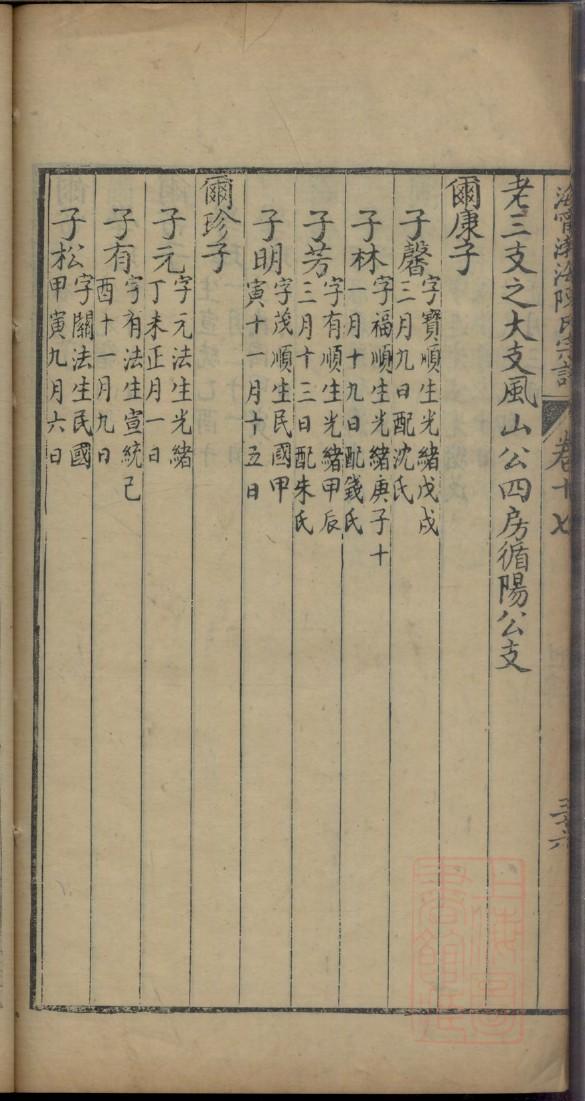 老三支之大支風山公四房循陽公支
爾康子
子馨字寶順生光緒戊戌
三月九日配沈氏
子林字福順生光緒庚子十
一月十九日配錢氏
子芳字有順生光緒甲辰
三月十三日配朱氏
子明字茂順生民國甲
寅十一月十五日
爾珍子
子元字元法生光緒
丁未正月一日
子有字有法生宣統己
酉十一月九日
子松字關法生民國
甲寅九月六日
海寧渤海陳氏宗譜
卷十七
三六
上海圖書館藏